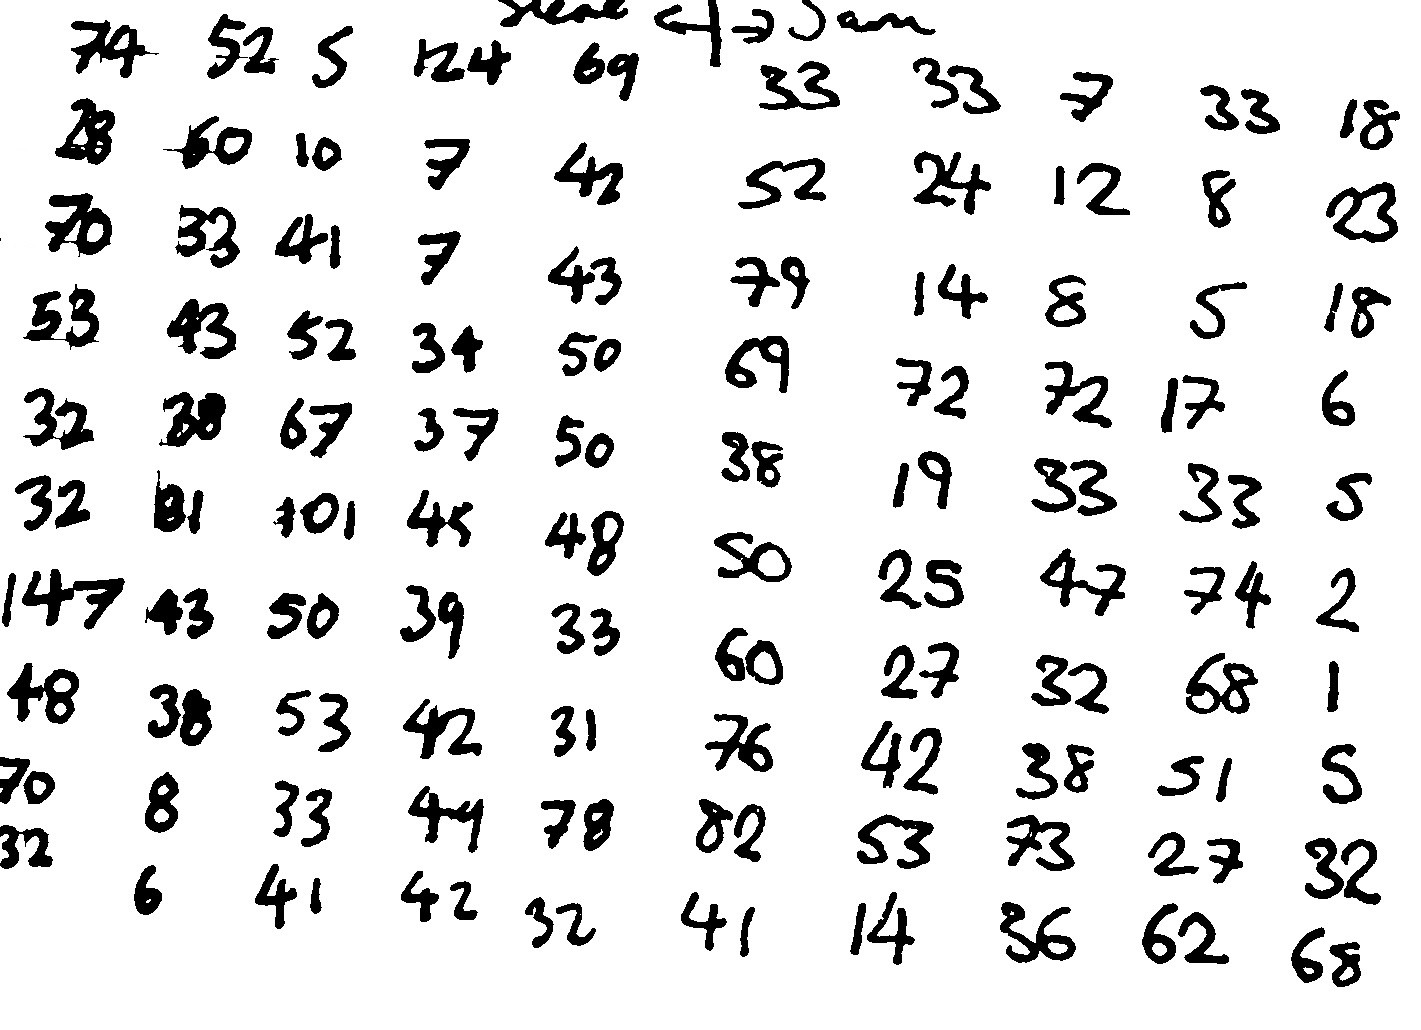 Steve <-|-> Sam
74 52 5 124 69 33 33 7 33 18
28 60 10 7 42 52 24 12 8 23
70 33 41 7 43 79 14 8 5 18
53 43 52 34 50 69 72 72 17 6
32 38 67 37 50 38 19 33 33 5
32 81 101 45 48 50 25 47 74 2
147 43 50 39 33 60 27 32 68 1
48 38 53 42 31 76 42 38 51 5
70 8 33 49 78 82 53 73 27 32
32 6 41 42 32 41 14 36 62 68